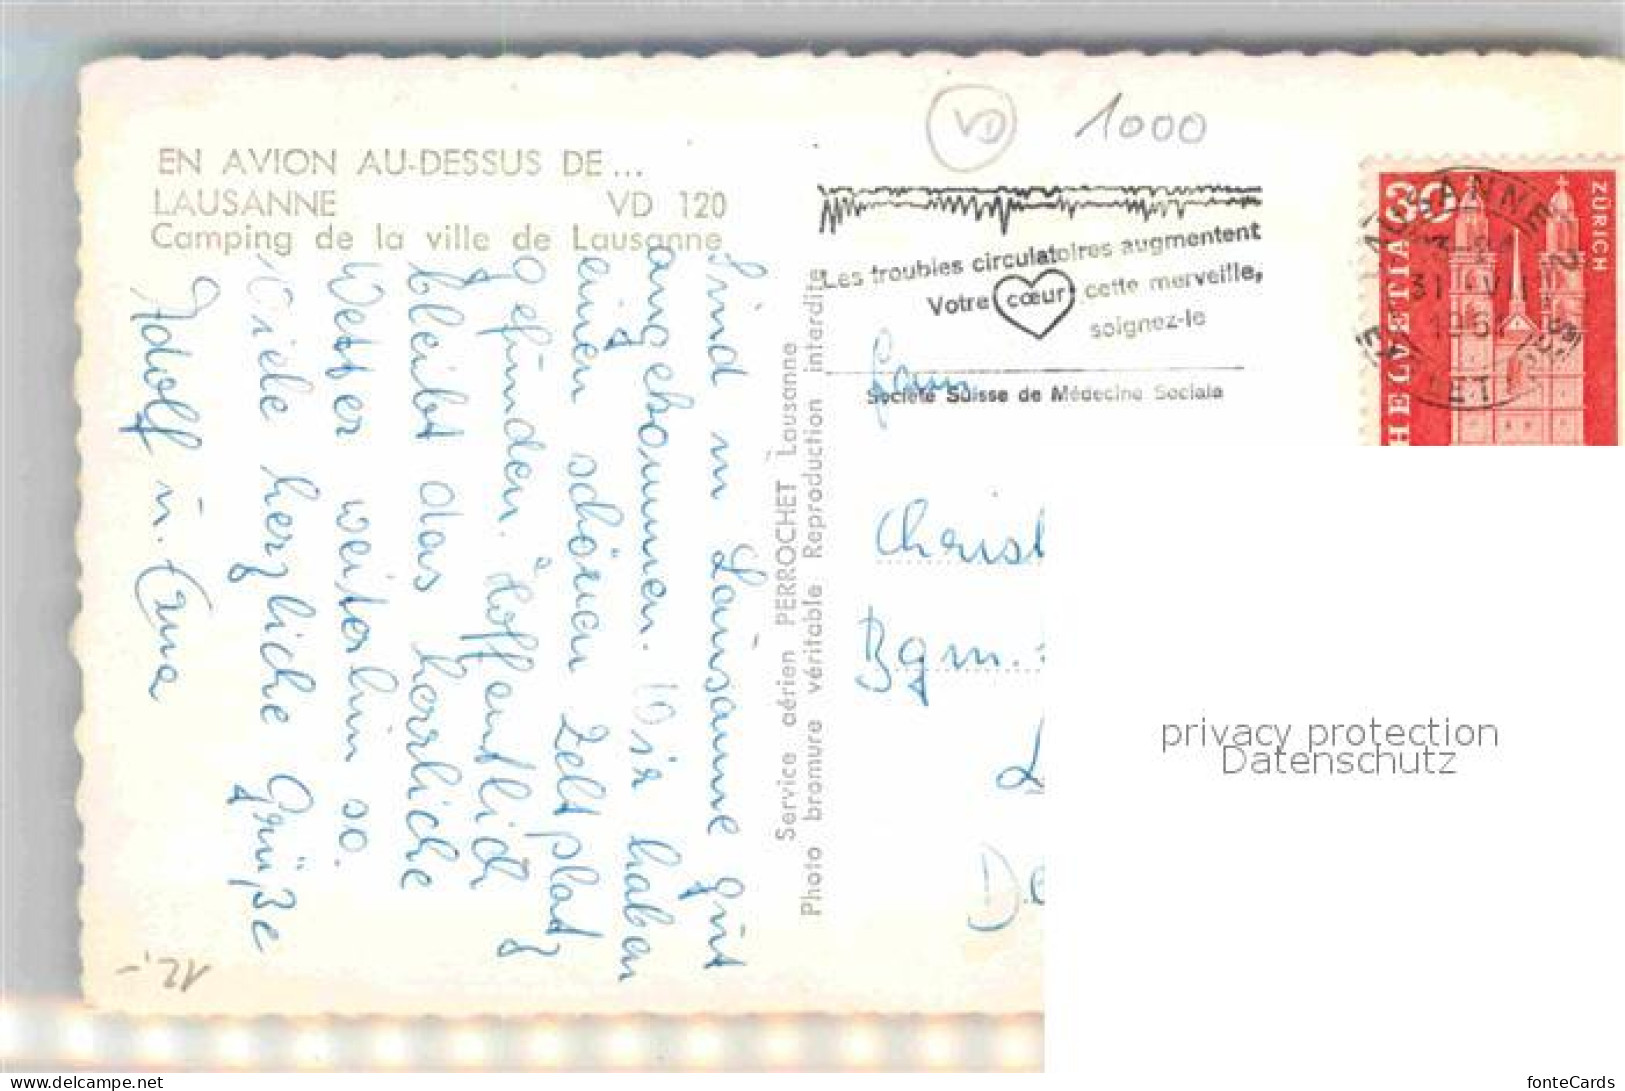 VD 1000
EN AVION AU-DESSUS DE...
LAUSANNE VD 120
Camping de la ville de Lausanne
Sind in Lausanne gut
angekommen. Wir haben
einen schönen Zeltplatz
gefunden. Hoffentlich
bleibt das herrliche
Wetter weiterhin so.
Viele herzliche Grüße
Adolf u. Erna
12,-
Service aérien PERROCHET Lausanne
Photo bromure véritable Reproduction interdite
Les troubles circulatoires augmentent
Votre cœur cette merveille,
soignez-le
Société Suisse de Médecine Sociale
30
HELVETIA
ZÜRICH
LAUSANNE 2
31.VII
1961
Fam
Christ
Bgm.
D
privacy protection
Datenschutz
www.delcampe.net
fonteCards